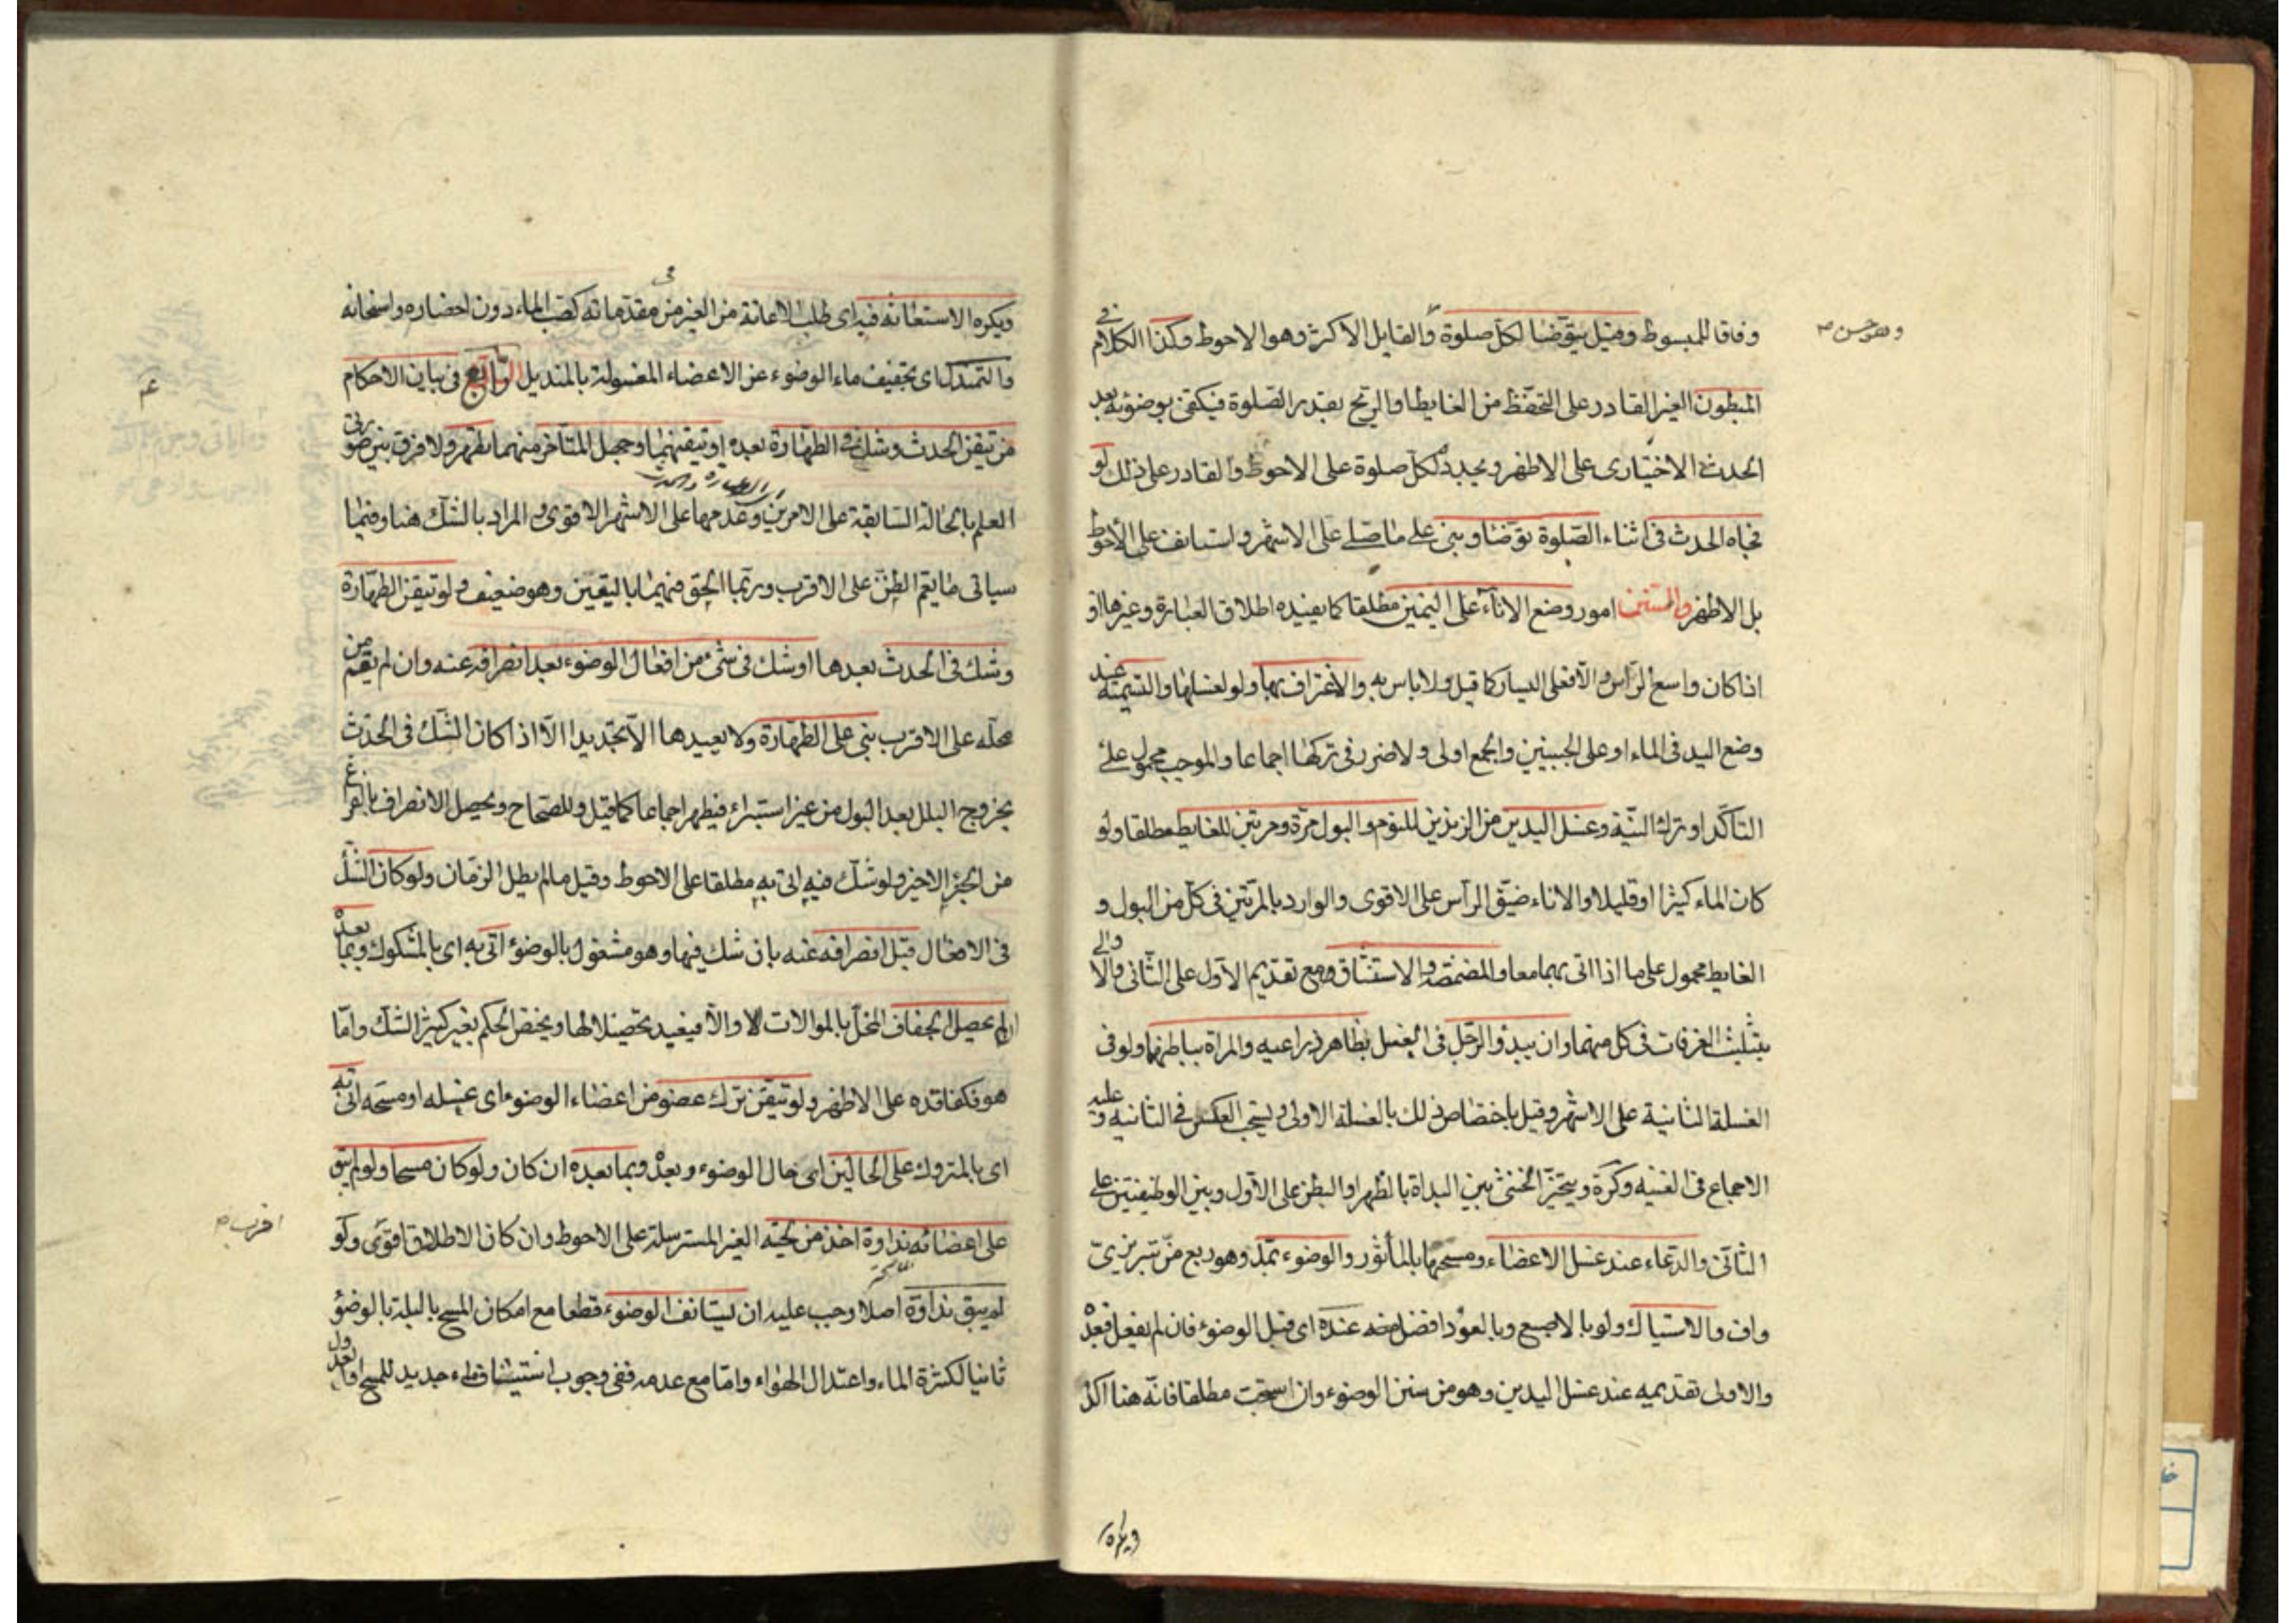 وفاقا للمبسوط وقيل يتوضا لكل صلوة والقايل الاكثر وهو الاحوط وكذا الكلام في
وهو حسن صح
المبطون الغير القادر على التحفظ من الغايط او الريح بقدر الصلوة فيكتفى بوضوئه بعد
الحدث الاختيارى على الاظهر ويجدده لكل صلوة على الاحوط والقادر على ذلك لو
فجاه الحدث فى اثناء الصلوة توضا وبنى على ما صلے على الاشهر واستانف على الاحوط
بل الاظهر والسنن امور وضع الاناء على اليمين مطلقا كما يفيده اطلاق العبارة وغيرها او
اذا كان واسع الراس والا فعلى اليسار كما قيل ولا باس به والاغتراف بها ولو لغسلها والتسمية عند
وضع اليد فى الماء او على الجبينين والجمع اولى ولا ضرر فى تركها اجماعا والموجب محمول علے
التاكد او ترك النية وغسل اليدين من الزندين للنوم والبول مرة ومرتين للغايط مطلقا ولو
كان الماء كثيرا او قليلا والاناء ضيق الراس على الاقوى والوارد بالمرتين فى كل من البول و
الغايط محمول على ما اذا اتى بهما معا والمضمضة والاستنشاق ومع تقديم الاول على الثانى والا والے
بتثليث الغرفات فى كل منهما وان يبدؤ الرجل فى الغسل بظاهر ذراعيه والمراة بباطنها ولو فى
الغسلة الثانية على الاشهر وقيل باختصاص ذلك بالغسلة الاولى ويستحب العكس فى الثانية وعليه
الاجماع فى الغنيه وكرة ويتخير الخنثى بين البداة بالظهر او البطن على الاول وبين الوظيفتين علے
الثانى والدعاء عند غسل الاعضاء ومسحها بالماثور والوضوء بمد وهو ربع من تبريزى
واف والاستياك ولو بالاصبع وبالعود افضل عنده اى قبل الوضوء فان لم يفعل فبعده
والاولى تقديمه عند غسل اليدين وهو من سنن الوضوء وان استحب مطلقا فانه هنا اكد
ويكره
ويكره الاستعانه فيه اى طلب الاعانة من الغير فى مقدماته كصب الماء دون احضاره واسخانه
والتمندل اى تجفيف ماء الوضوء عن الاعضاء المغسولة بالمنديل الرابع فى بيان الاحكام
من تيقن الحدث وشك فى الطهارة بعده او تيقنهما وجهل المتاخر منهما تطهر ولا فرق بين صورتى
العلم بالحالة السابقة على الامرين وعدمها على الاشهر الاقوى والمراد بالشك هنا وفيما
اى الطهارة والحدث
سياتى ما يعم الظن على الاقرب وربما الحق فيهما باليقين وهو ضعيف ولو تيقن الطهارة
وشك فى الحدث بعدها او شك فى شئ من افعال الوضوء بعد انصرافه عنه وان لم يقم من
محله على الاقرب بنى على الطهارة ولا يعيدها الا تجديدا الا اذا كان الشك فى الحدث
بخروج البلل بعد البول من غير استبراء فيطهر اجماعا كما قيل وللصحاح ويحصل الانصراف بالفراغ
من الجزء الاخير ولو شك فيه اتى به مطلقا على الاحوط وقيل ما لم يطل الزمان ولو كان الشك
فى الافعال قبل انصرافه عنه بان شك فيها وهو مشغول بالوضوء اتى به اى بالمشكوك وبما بعده
ان لم يحصل الجفاف المخل بالموالات والا فيعيد تحصيلا لها ويختص الحكم بغير كثير الشك واما
هو فكفاقده على الاظهر ولو تيقن ترك عضو من اعضاء الوضوء اى غسله او مسحه اتى به
اى بالمتروك على الحالين اى حال الوضوء وبعده وبما بعده ان كان ولو كان مسحا ولو لم يبق
على اعضائه نداوة اخذ من لحيته الغير المسترسلة على الاحوط وان كان الاطلاق اقوى ولو
اقرب صح
لم يبق نداوة اصلا وجب عليه ان يستانف الوضوء قطعا مع امكان المسح بالبلة بالوضوء
ثانيا لكثرة الماء واعتدال الهواء واما مع عدمه ففى وجوب استيناف ماء جديد للمسح او العدول